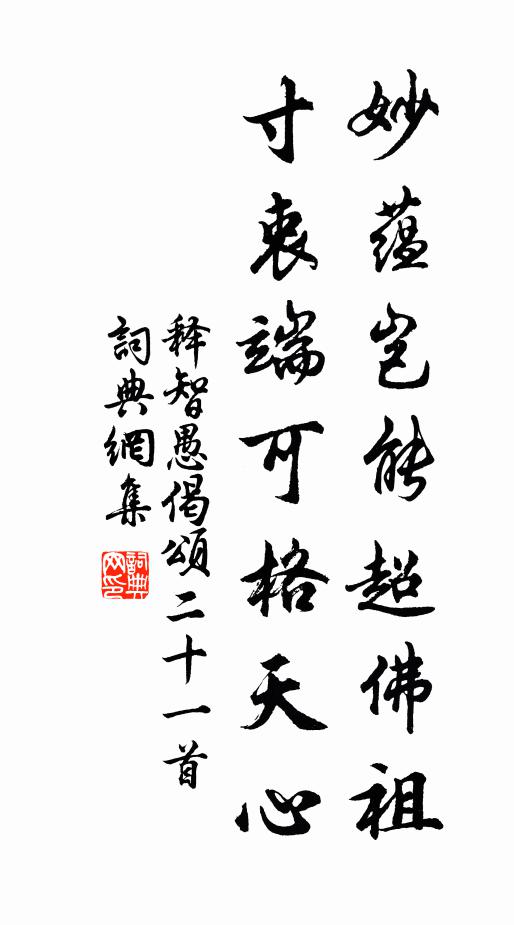 妙蕴岂能超佛祖
寸衷端可格天心
释智愚偈頌二十一首
詞典網集
詞典网印